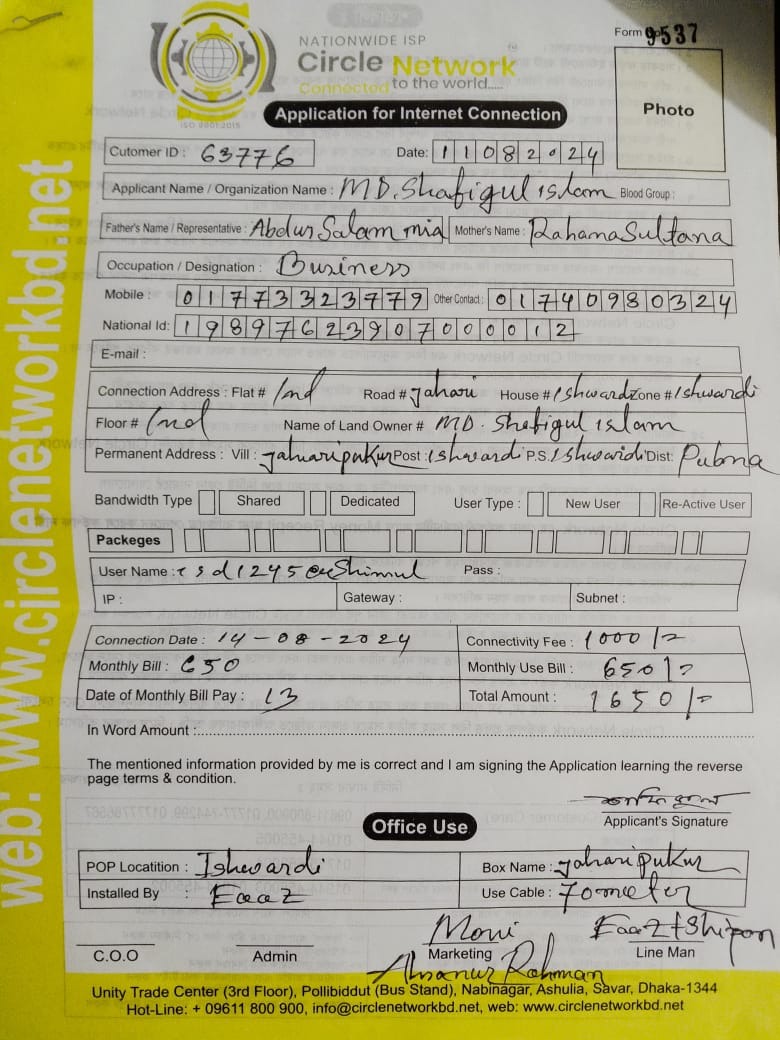 Form 9537
NATIONWIDE ISP
Circle Network
Connected to the world.....
ISO 9001:2015
Application for Internet Connection
Photo
Cutomer ID : 63776 Date: 11082024
Applicant Name / Organization Name : MD. Shafiqul islam Blood Group :
Father's Name / Representative : Abdus Salam mia Mother's Name : Rahama Sultana
Occupation / Designation : Business
Mobile : 01773323779 Other Contact : 01740980324
National Id: 19897623907000012
E-mail :
Connection Address : Flat # Road # Jahari House # Ishwardi Zone # Ishwardi
Floor # Name of Land Owner # MD. Shafiqul islam
Permanent Address : Vill : Jaharipukur Post : Ishwardi P.S. Ishwardi Dist: Pubna
Bandwidth Type Shared Dedicated User Type : New User Re-Active User
Packeges
User Name : Pass :
IP : Gateway : Subnet :
Connection Date : 14-08-2024 Connectivity Fee : 1000/=
Monthly Bill : 650 Monthly Use Bill : 650/=
Date of Monthly Bill Pay : 13 Total Amount : 1650/=
In Word Amount :
The mentioned information provided by me is correct and I am signing the Application learning the reverse
page terms & condition.
Applicant's Signature
Office Use
POP Locatition : Ishwardi Box Name : Jaharipukur
Installed By : Eaaz Use Cable : 70 meter
Moni Eaaz + Shipon
C.O.O Admin Marketing Line Man
Ahsanur Rahman
Unity Trade Center (3rd Floor), Pollibiddut (Bus Stand), Nabinagar, Ashulia, Savar, Dhaka-1344
Hot-Line: + 09611 800 900, info@circlenetworkbd.net, web: www.circlenetworkbd.net
web: www.circlenetworkbd.net